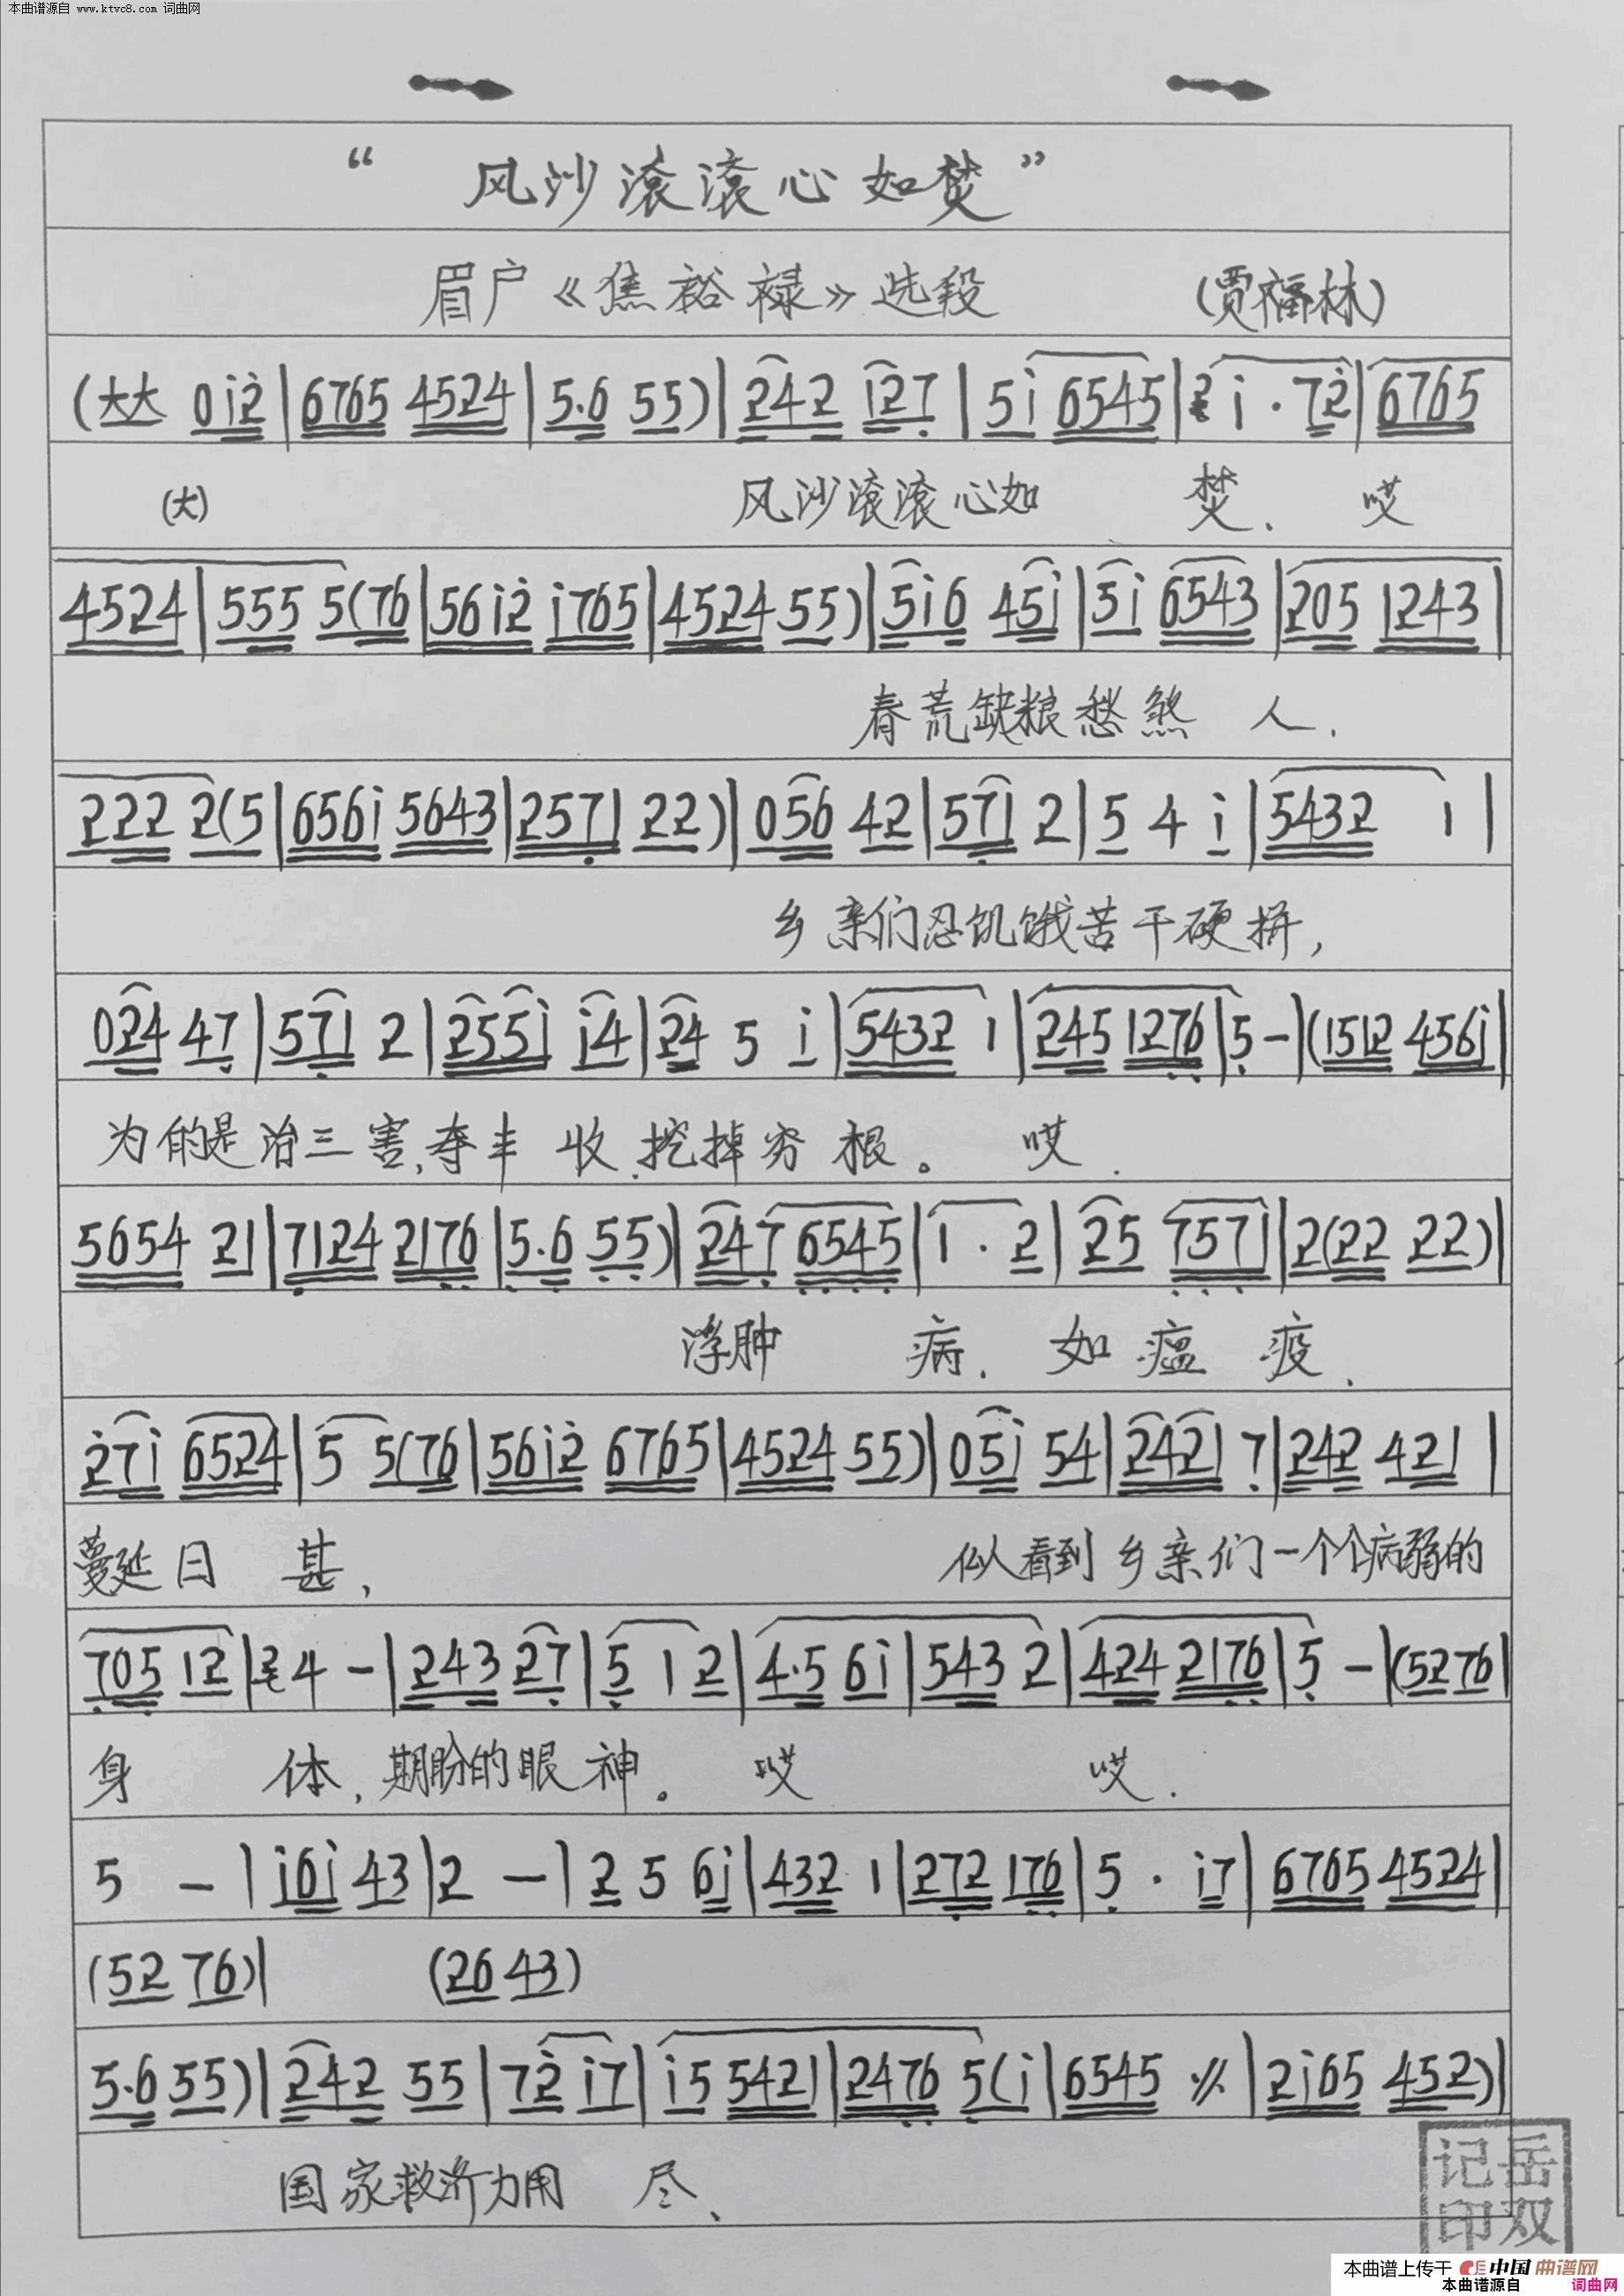 本曲谱源自 www.ktvc8.com 词曲网
“ 风沙滚滚心如焚 ”
眉户《焦裕禄》选段 (贾福林)
(大大 0i̇2̇|6765 4524|5.6 55)|242 127|5i̇ 6545|i̇ · 72̇|6765
(大) 风沙滚滚心如 焚、 哎
4524|555 5(76|56i̇2̇ i̇765|4524 55)|5i̇6 45i̇|5i̇ 6543|205 1243|
春荒缺粮愁煞 人、
222 2(5|656i̇ 5643|2571 22)|056 42|571 2|5 4 i̇|5432 1|
乡亲们忍饥饿苦干硬拼,
024 47|571 2|255i̇ i̇4|24 5 i̇|5432 1|245 1276|5-|(1512 456i̇|
为的是治三害,夺丰 收、挖掉穷 根。 哎.
5654 21|7124 2176|5.6 55)|247 6545|1 · 2|25 7571|2(22 22)|
浮肿 病、 如 瘟 疫、
2̇7i̇ 6524|5 5(76|56i̇2̇ 6765|4524 55)|05i̇ 54|2421 7|242 421|
蔓延日 甚, 似看到乡亲们一个个病弱的
705 12|4 -|243 27|5 1 2|4.5 6i̇|543 2|424 2176|5 -|(5276|
身 体, 期盼的眼神。 哎 哎.
5 -|i̇6i̇ 43|2 -|2 5 6i̇|432 1|272 176|5 · i̇7|6765 4524|
(52 76)| (26 43)
5.6 55)|242 55|72̇ i̇7|i̇5 5421|2476 5(i̇|6545 〃|2i̇65 452)|
国家救济力用 尽、
记岳
印双
本曲谱上传于 中国曲谱网
本曲谱源自 词曲网